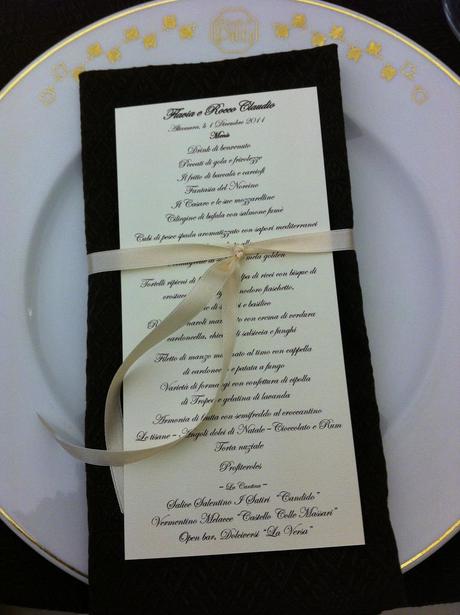 Flavia e Rocco Claudio
Altamura, lì 1 Dicembre 2011
Menù
Drink di benvenuto
Peccati di gola e fricolezze
Il fritto di baccalà e carciofi
Fantasia del Norcino
Il Casaro e le sue mozzarelline
Ciliegine di bufala con salmone fumè
Cubi di pesce spada aromatizzato con sapori mediterranei
mela golden
Tortelli ripieni di polpa di ricci con bisque di
pomodoro fiaschetto,
e basilico
con crema di verdura
cardoncella, salsiccia e funghi
Filetto di manzo al timo con cappella
di cardoncello e patata a fungo
Varietà di formaggi con confettura di cipolla
di Tropea e gelatina di lavanda
Armonia di frutta con semifreddo al croccantino
Le tisane – Angoli dolci di Natale – Cioccolato e Rum
Torta nuziale
Profiteroles
~ La Cantina ~
Salice Salentino I Satiri "Candido"
Vermentino Melacce "Castello Colle Massari"
Open bar, Dolciversi "La Versa"